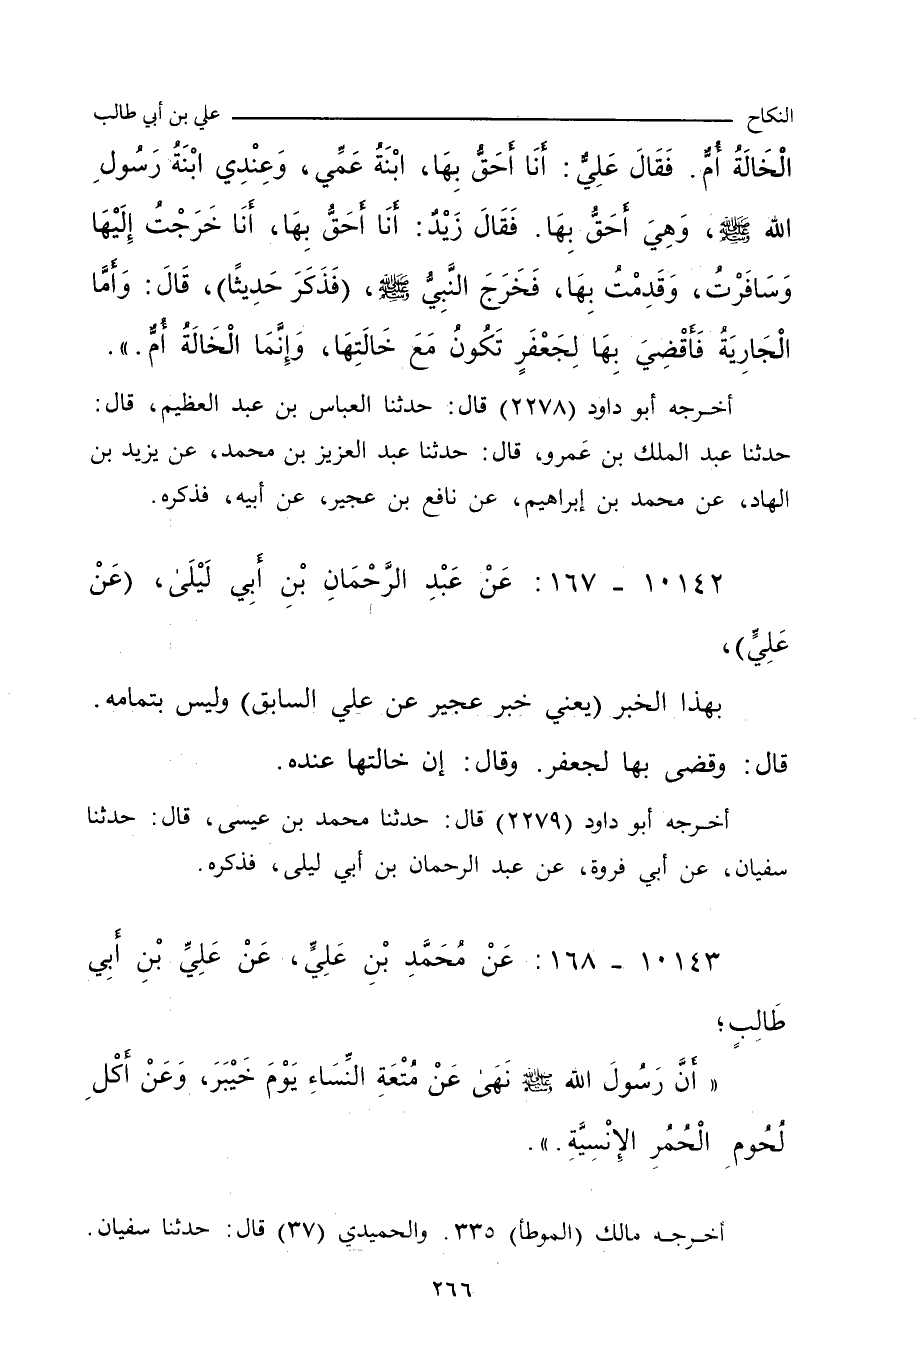 النكاح ــــــــــــ علي بن أبي طالب
الْخَالَةُ أُمٌّ. فَقَالَ عَلِيٌّ: أَنَا أَحَقُّ بِهَا، ابْنَةُ عَمِّي، وَعِنْدِي ابْنَةُ رَسُولِ
الله ﷺ، وَهِيَ أَحَقُّ بِهَا. فَقَالَ زَيْدٌ: أَنَا أَحَقُّ بِهَا، أَنَا خَرَجْتُ إِلَيْهَا
وَسَافَرْتُ، وَقَدِمْتُ بِهَا، فَخَرَجَ النَّبِيُّ ﷺ، (فَذَكَرَ حَدِيثًا)، قَالَ: وَأَمَّا
الْجَارِيَةُ فَأَقْضِيَ بِهَا لِجَعْفَرٍ تَكُونُ مَعَ خَالَتِهَا، وَإِنَّمَا الْخَالَةُ أُمٌّ.».
أخرجه أبو داود (٢٢٧٨) قال: حدثنا العباس بن عبد العظيم، قال:
حدثنا عبد الملك بن عَمرو، قال: حدثنا عبد العزيز بن محمد، عن يزيد بن
الهاد، عن محمد بن إبراهيم، عن نافع بن عجير، عن أبيه، فذكره.
١٠١٤٢ ـ ١٦٧: عَنْ عَبْدِ الرَّحْمَانِ بْنِ أَبِي لَيْلَىٰ، (عَنْ
عَلِيٍّ)،
بهذا الخبر (يعني خبر عجير عن علي السابق) وليس بتمامه.
قال: وقضى بها لجعفر. وقال: إن خالتها عنده.
أخرجه أبو داود (٢٢٧٩) قال: حدثنا محمد بن عيسى، قال: حدثنا
سفيان، عن أبي فروة، عن عبد الرحمان بن أبي ليلى، فذكره.
١٠١٤٣ ـ ١٦٨: عَنْ مُحَمَّدِ بْنِ عَلِيٍّ، عَنْ عَلِيِّ بْنِ أَبِي
طَالِبٍ؛
« أَنَّ رَسُولَ الله ﷺ نَهَىٰ عَنْ مُتْعَةِ النِّسَاءِ يَوْمَ خَيْبَرَ، وَعَنْ أَكْلِ
لُحُومِ الْحُمُرِ الإِنْسِيَّةِ.».
أخرجه مالك (الموطأ) ٣٣٥. والحميدي (٣٧) قال: حدثنا سفيان.
٢٦٦